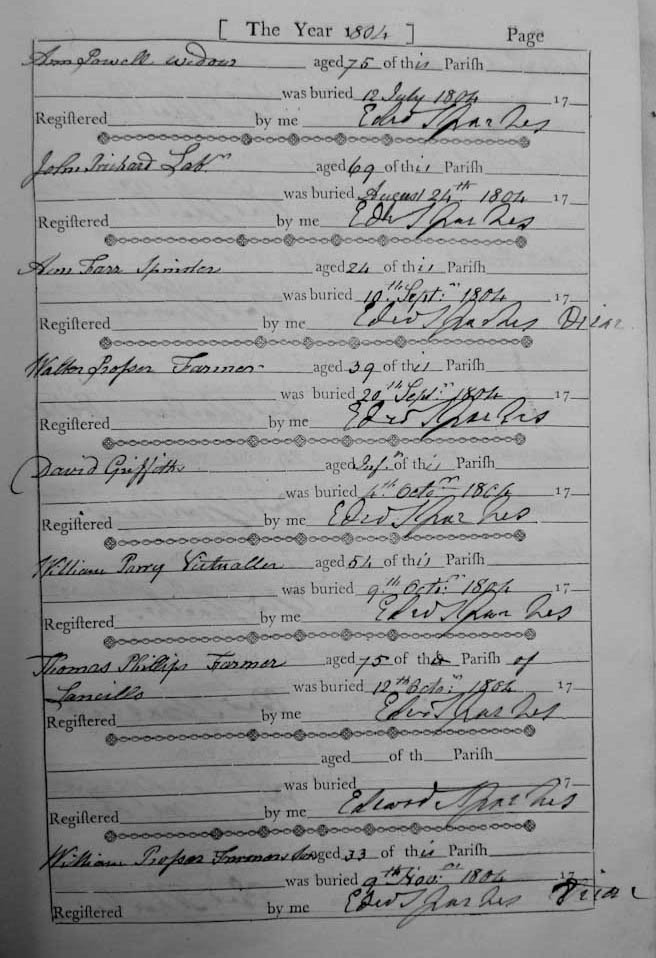 [ The Year 1804 ] Page
Ann Powell Widow aged 75 of this Pariſh
was buried 12 July 1804 17
Regiſtered by me Edwd Sparkes
John Prichard Labr aged 69 of this Pariſh
was buried August 24th 1804 17
Regiſtered by me Edw Sparkes
Ann Farr Spinster aged 24 of this Pariſh
was buried 10th Septr 1804 17
Regiſtered by me Edwd Sparkes Vicar
Walter Proſser Farmer aged 39 of this Pariſh
was buried 20th Septr 1804 17
Regiſtered by me Edwd Sparkes
David Griffiths aged Infn of this Pariſh
was buried 4th Octor 1804 17
Regiſtered by me Edwd Sparkes
William Parry Victualler aged 54 of this Pariſh
was buried 9th Octr 1804 17
Regiſtered by me Edwd Sparkes
Thomas Phillips Farmer aged 75 of the Pariſh of
Lancillo was buried 12th Octor 1804 17
Regiſtered by me Edwd Sparkes
aged of th Pariſh
was buried 17
Regiſtered by me Edward Sparkes
William Proſser Farmers Son aged 33 of this Pariſh
was buried 9th Novr 1804 17
Regiſtered by me Edwd Sparkes Vicar